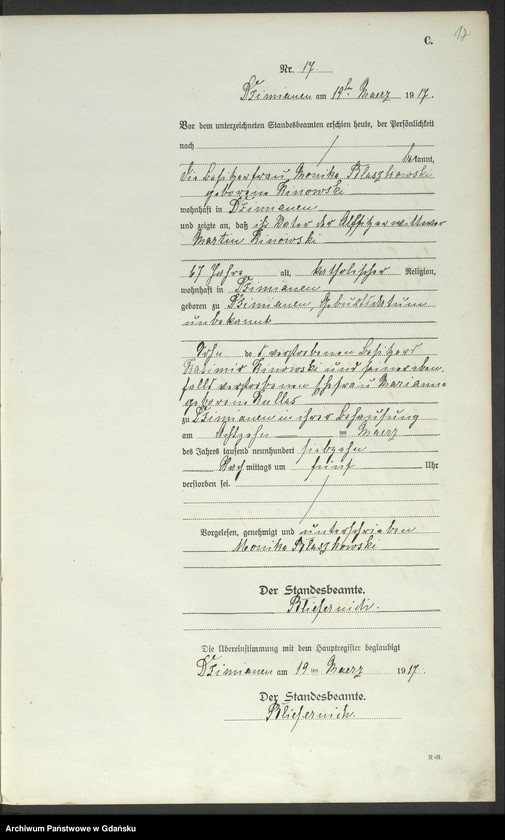 C.
17
Nr. 17.
Dzimianen am 19ten Maerz 1917.
Vor dem unterzeichneten Standesbeamten erschien heute, der Persönlichkeit
nach
bekannt,
die Besitzerfrau Monika Blaszkowski
geborene Kinowski
wohnhaft in Dzimianen
und zeigte an, daß ihr Vater der Altsitzer witwer
Martin Kinowski
67 Jahre alt, katholischer Religion,
wohnhaft in Dzimianen
geboren zu Dzimianen, Geburtsdatum
unbekannt
Sohn des verstorbenen Besitzers
Kasimir Kinowski und seiner eben
falls verstorbenen Ehefrau Marianna
geborene Kullas
zu Dzimianen in ihrer Behausung
am achtzehn ten Maerz
des Jahres tausend neunhundert siebzehn
Nachmittags um fünf Uhr
verstorben sei.
Vorgelesen, genehmigt und unterschrieben
Monika Blaszkowski
Der Standesbeamte.
Bliefernich.
Die Übereinstimmung mit dem Hauptregister beglaubigt
Dzimianen am 19 ten Maerz 1917.
Der Standesbeamte.
Bliefernich.
Archiwum Państwowe w Gdańsku